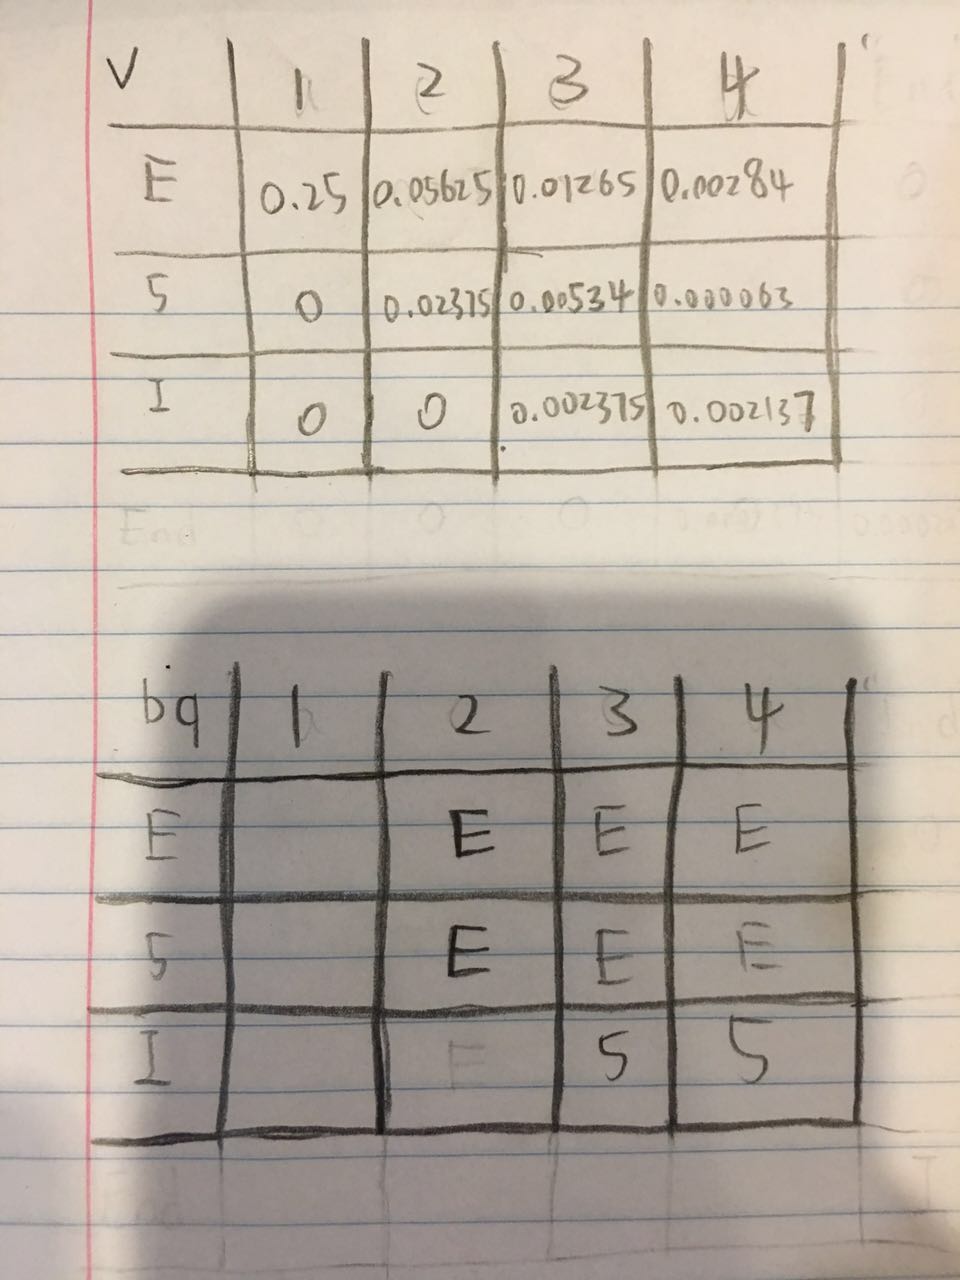 V 1 2 3 4
E 0.25 0.05625 0.01265 0.00284
5 0 0.02375 0.00534 0.000063
I 0 0 0.002375 0.002137
End 0 0 0
bq 1 2 3 4
E E E E
5 E E E
I E S 5